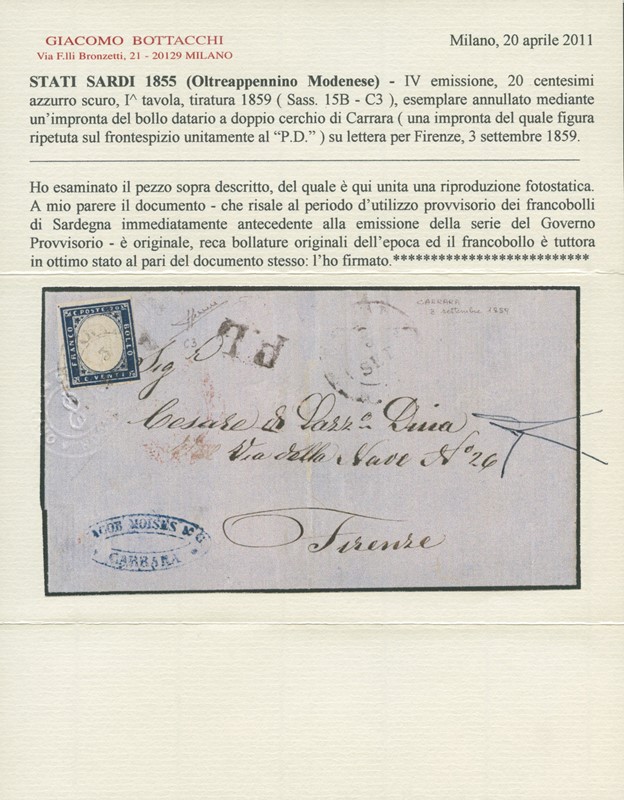 GIACOMO BOTTACCHI
Via F.lli Bronzetti, 21 - 20129 MILANO
Milano, 20 aprile 2011
STATI SARDI 1855 (Oltreappennino Modenese) - IV emissione, 20 centesimi
azzurro scuro, I^ tavola, tiratura 1859 ( Sass. 15B - C3 ), esemplare annullato mediante
un'impronta del bollo datario a doppio cerchio di Carrara ( una impronta del quale figura
ripetuta sul frontespizio unitamente al “P.D.” ) su lettera per Firenze, 3 settembre 1859.
Ho esaminato il pezzo sopra descritto, del quale è qui unita una riproduzione fotostatica.
A mio parere il documento - che risale al periodo d'utilizzo provvisorio dei francobolli
di Sardegna immediatamente antecedente alla emissione della serie del Governo
Provvisorio - è originale, reca bollature originali dell'epoca ed il francobollo è tuttora
in ottimo stato al pari del documento stesso: l'ho firmato.**************************
C POSTE 20
FRANCO
BOLLO
C VENTI
C3
P.D.
SET
CARRARA
3 settembre 1859
Sig
Cesare di Lazzo Dina
Via della Nave No 26
Firenze
MOISES
CARRARA